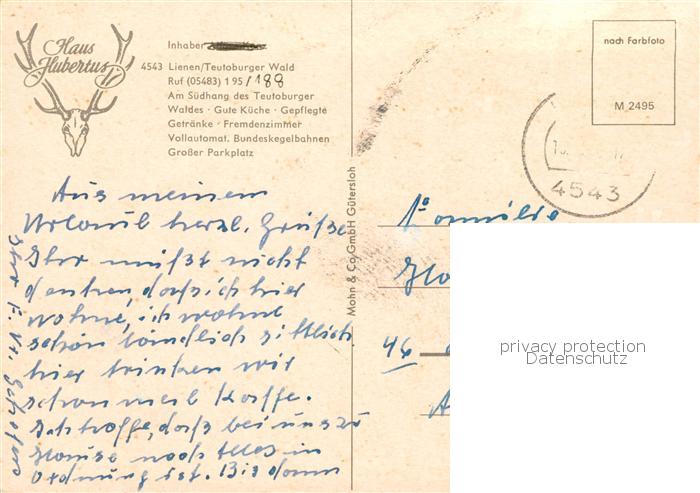 Haus
Hubertus
Inhaber
4543 Lienen/Teutoburger Wald
Ruf (05483) 195/188
Am Südhang des Teutoburger
Waldes · Gute Küche · Gepflegte
Getränke · Fremdenzimmer
Vollautomat. Bundeskegelbahnen
Großer Parkplatz
Aus meinem
Urlaub herzl. Grüße
Ihr müßt nicht
denken, daß ich hier
wohne, ich wohne
schön ländlich sittlich
hier trinken wir
schon mal Kaffe.
Ich hoffe, daß bei uns zu
Hause noch Alles in
Ordnung ist. Bis dann
Ihre
Mohn & Co GmbH Gütersloh
nach Farbfoto
M 2495
4543
Familie
46
privacy protection
Datenschutz